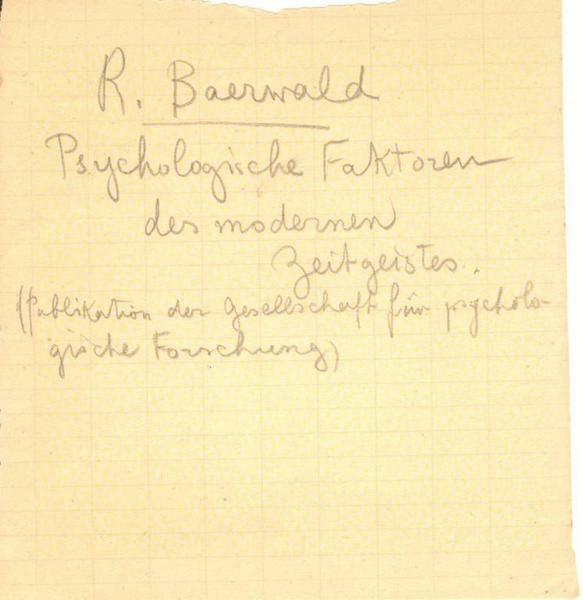 R. Baerwald
Psychologische Faktoren
des modernen
Zeitgeistes.
(Publikation der Gesellschaft für psycholo-
gische Forschung)